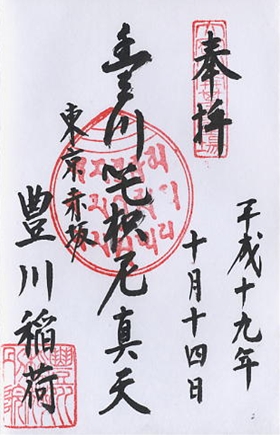 奉拝
平成十九年
十月十四日
豊川吒枳尼真天
東京赤坂
豊川稲荷